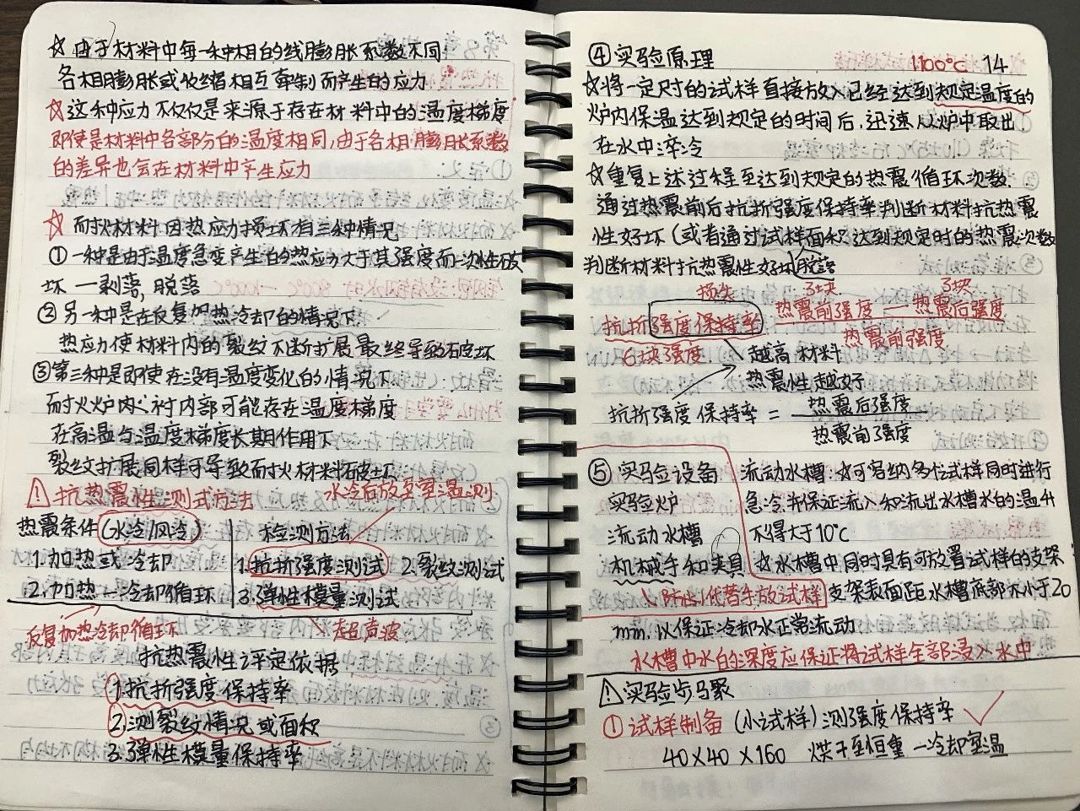 ☆ 由于材料中每一种相的线膨胀系数不同
各相膨胀或收缩相互牵制而产生的应力
☆这种应力不仅仅是来源于存在材料中的温度梯度
即使是材料中各部分的温度相同,由于各相膨胀系数
的差异也会在材料中产生应力
☆ 耐火材料因热应力损坏有三种情况
①一种是由于温度急变产生的热应力大于其强度而一次性破
坏 — 剥落,脱落
②另一种是在反复加热冷却的情况下
热应力使材料内的裂纹不断扩展最终导致破坏
③第三种是即使在没有温度变化的情况下
耐火炉内衬内部可能存在温度梯度
在高温与温度梯度长期作用下
裂纹扩展同样可导致耐火材料破坏
⚠ 抗热震性测试方法 水冷后放至室温测
热震条件(水冷/风冷) 检测方法
1.加热或冷却 1.抗折强度测试 2.裂纹测试
2.加热—冷却循环 3.弹性模量测试
反复加热冷却循环 超声波
抗热震性评定依据
1.抗折强度保持率
2.测裂纹情况或面积
3.弹性模量保持率
④实验原理 1100°C 14
☆将一定尺寸的试样直接放入已经达到规定温度的
炉内保温达到规定的时间后,迅速从炉中取出
在水中淬冷
☆重复上述过程至达到规定的热震循环次数.
通过热震前后抗折强度保持率判断材料抗热震
性好坏(或者通过试样面积达到规定时的热震次数
判断材料抗热震性好坏 脱落
损失 3块 3块
抗折强度保持率 热震前强度 — 热震后强度
6块强度 热震前强度
越高材料
热震性越好
抗折强度保持率 = 热震后强度
热震前强度
⑤ 实验设备 流动水槽:☆可容纳多个试样同时进行
实验炉 急冷并保证流入和流出水槽水的温升
流动水槽 不得大于10°C
机械手和夹具 ☆水槽中同时具有可放置试样的支架
代替手放试样 支架表面距水槽底部不小于20
mm.以保证冷却水正常流动
水槽中水的深度应保证将试样全部浸入水中
⚠实验步骤
①试样制备 (小试样)测强度保持率
40×40×160 烘干至恒重 —冷却室温